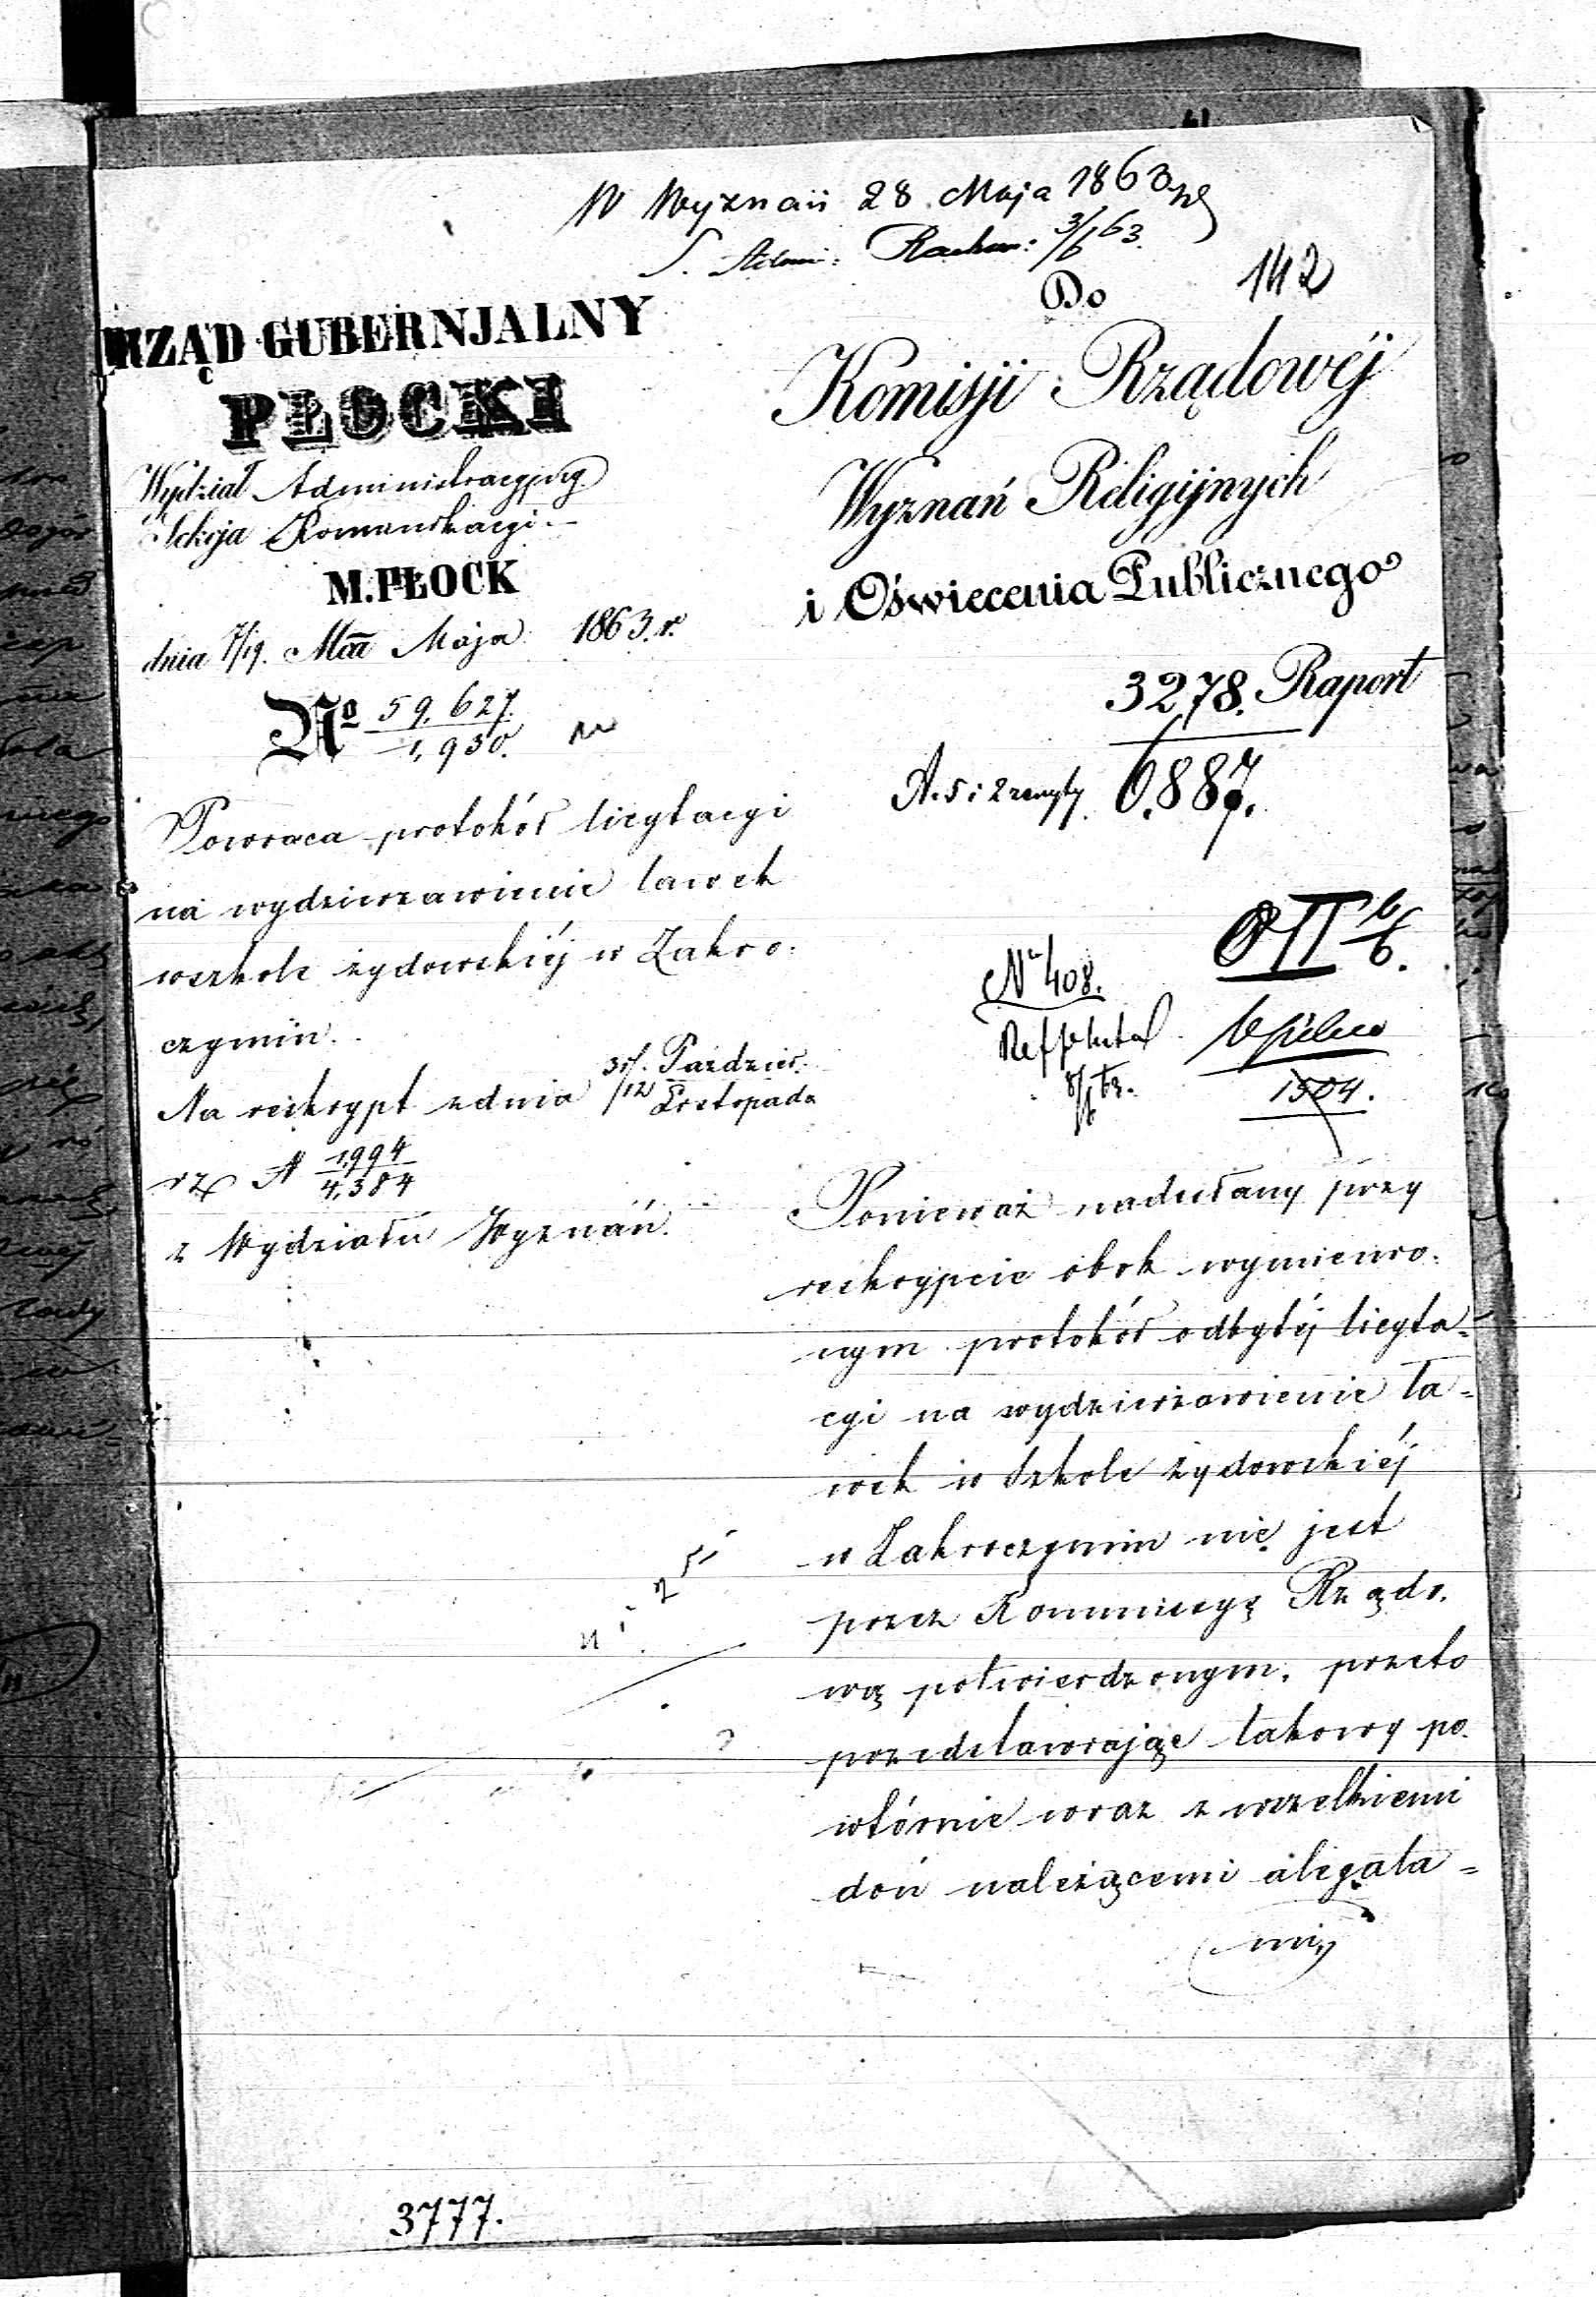 W Wyznań 28 Maja 1863
S. Admi: Rachun: 3/6 63.
142
RZĄD GUBERNJALNY
PŁOCKI
Wydział Administracyjny
Sekcja Konsumkacyi.
M. PŁOCK
dnia 7/19. Maja 1863. r.
No 59,627. / 1,930.
Powraca protokół licytacyi
na wydzierzawienie ławek
wszkole żydowskiéj w Zakro-
czymiu.
Na reskrypt z dnia 31/12 Paździer. Listopada
rz N 1,994 / 4,384
z Wydziału Wyznań.
Do
Komisji Rządowéj
Wyznań Religijnych
i Oświecenia Publicznego
3278. Raport
A. 5 i 2 zeszyty. 6,887.
No 408.
1504.
Ponieważ nadesłany przy
reskrypcie obok wymienio-
nym protokół odbytéj licyta-
cyi na wydzierżawienie ła-
wek w Szkole żydowskiéj
w Zakroczymiu nie jest
przez Kommissyę Rządo-
wą potwierdzonym, przeto
przedstawiając takowy po-
wtórnie wraz z wszelkiemi
doń należącemi alegata-
mi,
3777.